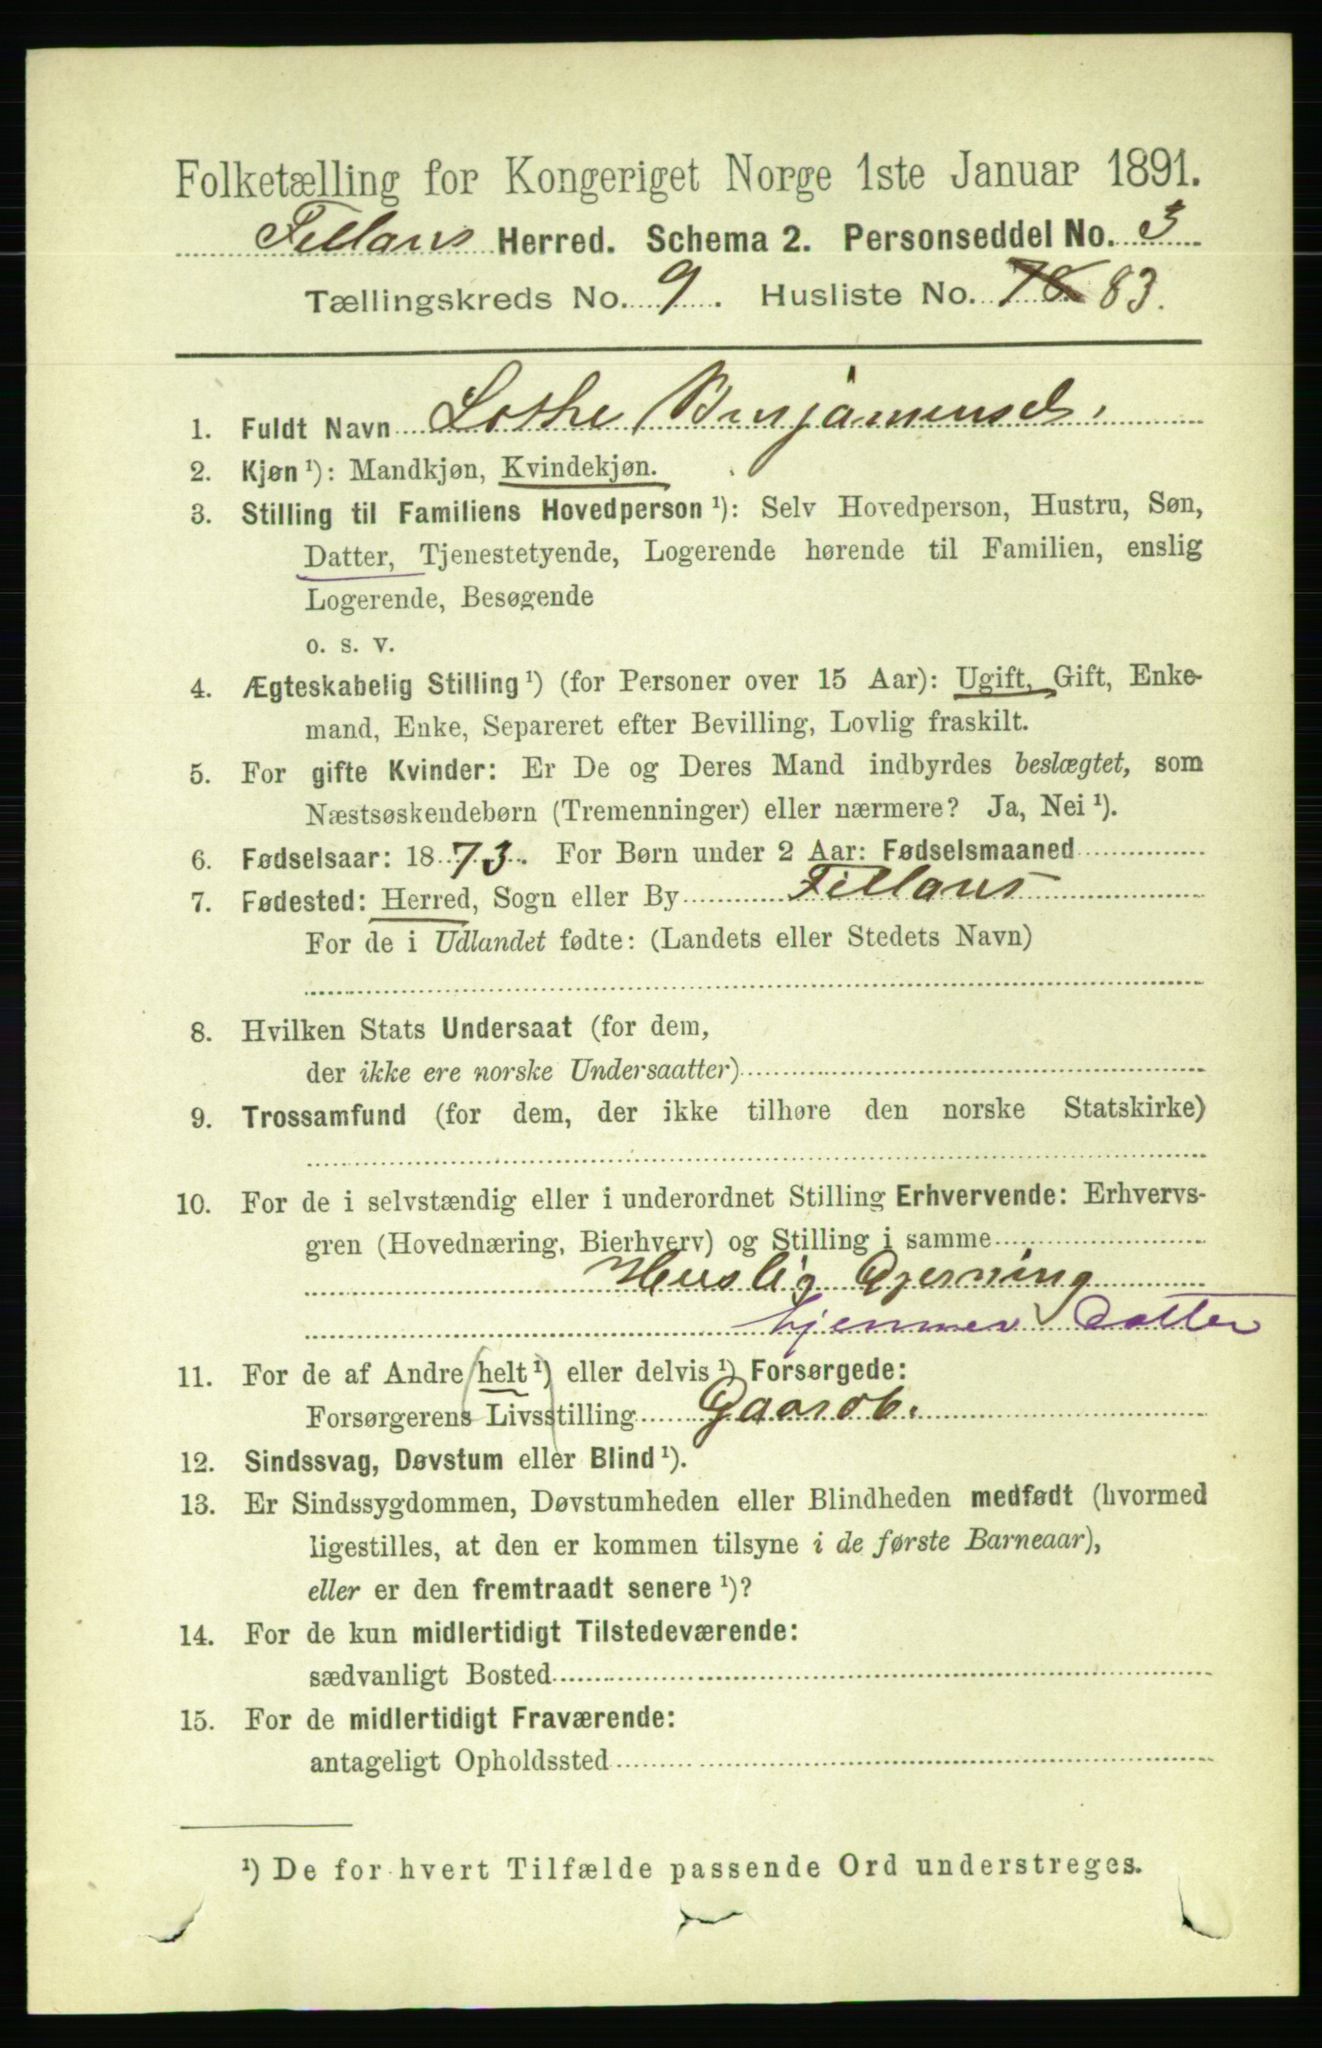 Folketælling for Kongeriget Norge 1ste Januar 1891.
Fillans Herred. Schema 2. Personseddel No. 3
Tællingskreds No. 9. Husliste No. 78 83.
1. Fuldt Navn Lothe Benjaminsd.
2. Kjøn ¹): Mandkjøn, Kvindekjøn.
3. Stilling til Familiens Hovedperson ¹): Selv Hovedperson, Hustru, Søn,
Datter, Tjenestetyende, Logerende hørende til Familien, enslig
Logerende, Besøgende
o. s. v.
4. Ægteskabelig Stilling ¹) (for Personer over 15 Aar): Ugift, Gift, Enke-
mand, Enke, Separeret efter Bevilling, Lovlig fraskilt.
5. For gifte Kvinder: Er De og Deres Mand indbyrdes beslægtet, som
Næstsøskendebørn (Tremenninger) eller nærmere? Ja, Nei ¹).
6. Fødselsaar: 1873. For Børn under 2 Aar: Fødselsmaaned
7. Fødested: Herred, Sogn eller By Fillans
For de i Udlandet fødte: (Landets eller Stedets Navn)
8. Hvilken Stats Undersaat (for dem,
der ikke ere norske Undersaatter)
9. Trossamfund (for dem, der ikke tilhøre den norske Statskirke)
10. For de i selvstændig eller i underordnet Stilling Erhvervende: Erhvervs-
gren (Hovednæring, Bierhverv) og Stilling i samme
Huslig Gjerning
hjemmev Datter
11. For de af Andre (helt ¹) eller delvis ¹) Forsørgede:
Forsørgerens Livsstilling Gaardb.
12. Sindssvag, Døvstum eller Blind ¹).
13. Er Sindssygdommen, Døvstumheden eller Blindheden medfødt (hvormed
ligestilles, at den er kommen tilsyne i de første Barneaar),
eller er den fremtraadt senere ¹)?
14. For de kun midlertidigt Tilstedeværende:
sædvanligt Bosted
15. For de midlertidigt Fraværende:
antageligt Opholdssted
¹) De for hvert Tilfælde passende Ord understreges.